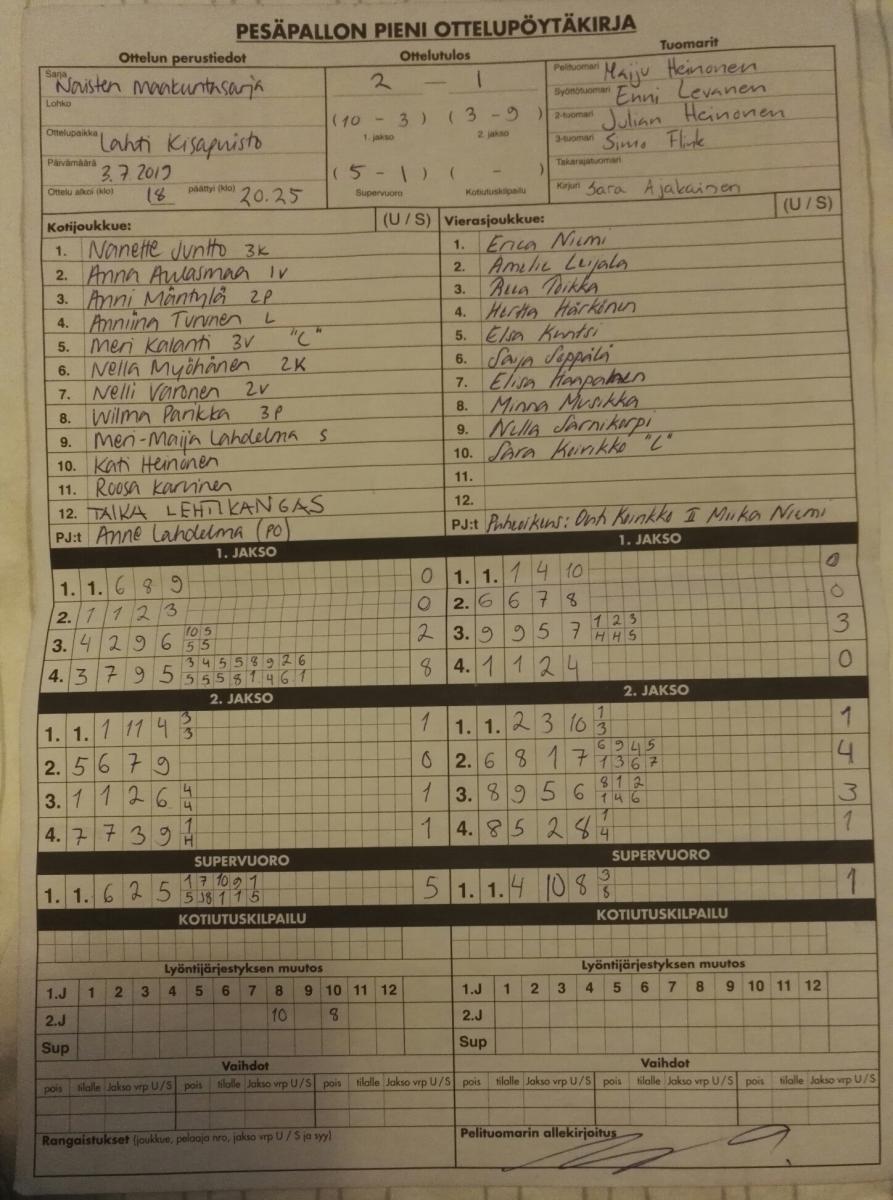 PESÄPALLON PIENI OTTELUPÖYTÄKIRJA
Ottelun perustiedot
Sarja Naisten maakuntasarja
Lohko
Ottelupaikka Lahti Kisapuisto
Päivämäärä 3.7.2019
Ottelu alkoi (klo) 18 päättyi (klo) 20.25
Ottelutulos
2 – 1
(10 – 3) (3 – 9)
1. jakso 2. jakso
(5 – 1) ( – )
Supervuoro Kotiutuskilpailu
Tuomarit
Pelituomari Maiju Heinonen
Syöttötuomari Enni Levanen
2-tuomari Julian Heinonen
3-tuomari Simo Flink
Takarajatuomari
Kirjuri Sara Ajakainen
Kotijoukkue: (U / S)
1. Nanette Juntto 3K
2. Anna Aulasmaa 1v
3. Anni Mäntylä 2P
4. Anniina Turunen L
5. Meri Kalanti 3v "C"
6. Nella Myöhänen 2K
7. Nelli Varonen 2v
8. Wilma Parikka 3P
9. Meri-Maija Lahdelma S
10. Kati Heinonen
11. Roosa Karvinen
12. TAIKA LEHTIKANGAS
PJ:t Anne Lahdelma (PO)
Vierasjoukkue: (U / S)
1. Erica Niemi
2. Amelie Leijala
3. Toikka
4. Hertta Härkönen
5. Elsa Kuntsi
6. Saija Seppälä
7. Elisa
8. Minna Musikka
9. Nella Sarnikorpi
10. Sara Keinikko "C"
11.
12.
PJ:t Puheoikeus: Outi Keinikko II Miika Niemi
1. JAKSO
1. 1. 6 8 9 0
2. 1 1 2 3 0
3. 4 2 9 6 10 5 2
5 5
4. 3 7 9 5 3 4 5 5 8 9 2 6 8
5 5 5 8 1 4 6 1
2. JAKSO
1. 1. 1 11 4 3 1
3
2. 5 6 7 9 0
3. 1 1 2 6 4 1
4
4. 7 7 3 9 1 1
H
SUPERVUORO
1. 1. 6 2 5 1 7 10 9 1 5
5 8 1 1 5
KOTIUTUSKILPAILU
1. JAKSO
1. 1. 1 4 10 0
2. 6 6 7 8 0
3. 9 9 5 7 1 2 3 3
H 4 5
4. 1 1 2 4 0
2. JAKSO
1. 1. 2 3 10 1 1
3
2. 6 8 1 7 6 9 4 5 4
1 3 6 7
3. 8 9 5 6 8 1 2 3
1 4 6
4. 8 5 2 8 1 1
4
SUPERVUORO
1. 1. 4 10 8 3 1
8
KOTIUTUSKILPAILU
Lyöntijärjestyksen muutos
1.J 1 2 3 4 5 6 7 8 9 10 11 12
2.J 10 8
Sup
Vaihdot
pois tilalle Jakso vrp U / S pois tilalle Jakso vrp U / S pois tilalle Jakso vrp U / S
Rangaistukset (joukkue, pelaaja nro, jakso vrp U / S ja syy)
Lyöntijärjestyksen muutos
1.J 1 2 3 4 5 6 7 8 9 10 11 12
2.J
Sup
Vaihdot
pois tilalle Jakso vrp U / S pois tilalle Jakso vrp U / S pois tilalle Jakso vrp U / S
Pelituomarin allekirjoitus